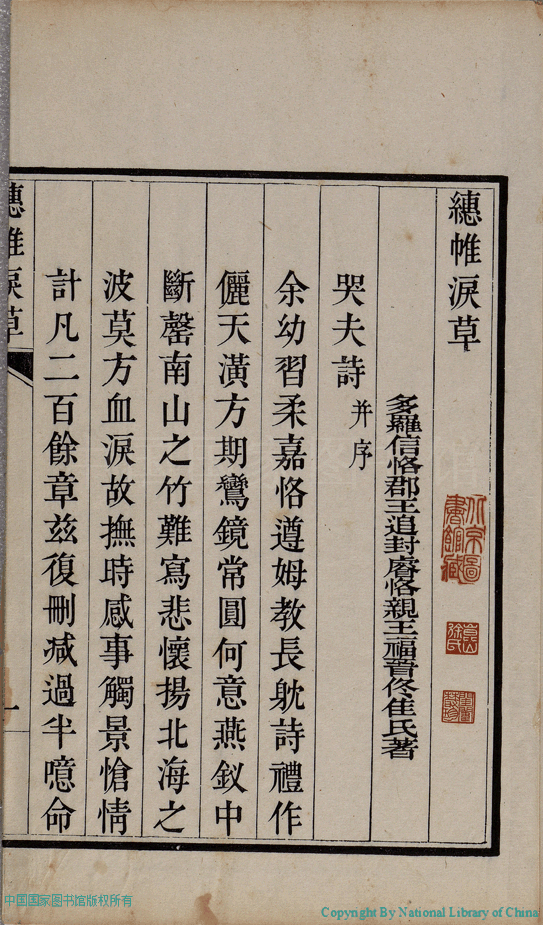 繐帷淚草
多羅信恪郡王追封睿恪親王福晉佟佳氏著
哭夫詩并序
余幼習柔嘉恪遵姆教長躭詩禮作
儷天潢方期鸞鏡常圓何意燕釵中
斷罄南山之竹難寫悲懷揚北海之
波莫方血淚故撫時感事觸景愴情
計凡二百餘章茲復刪减過半噫命
繐帷淚草
一
北京圖書館藏
中国国家图书馆版权所有
Copyright By National Library of China